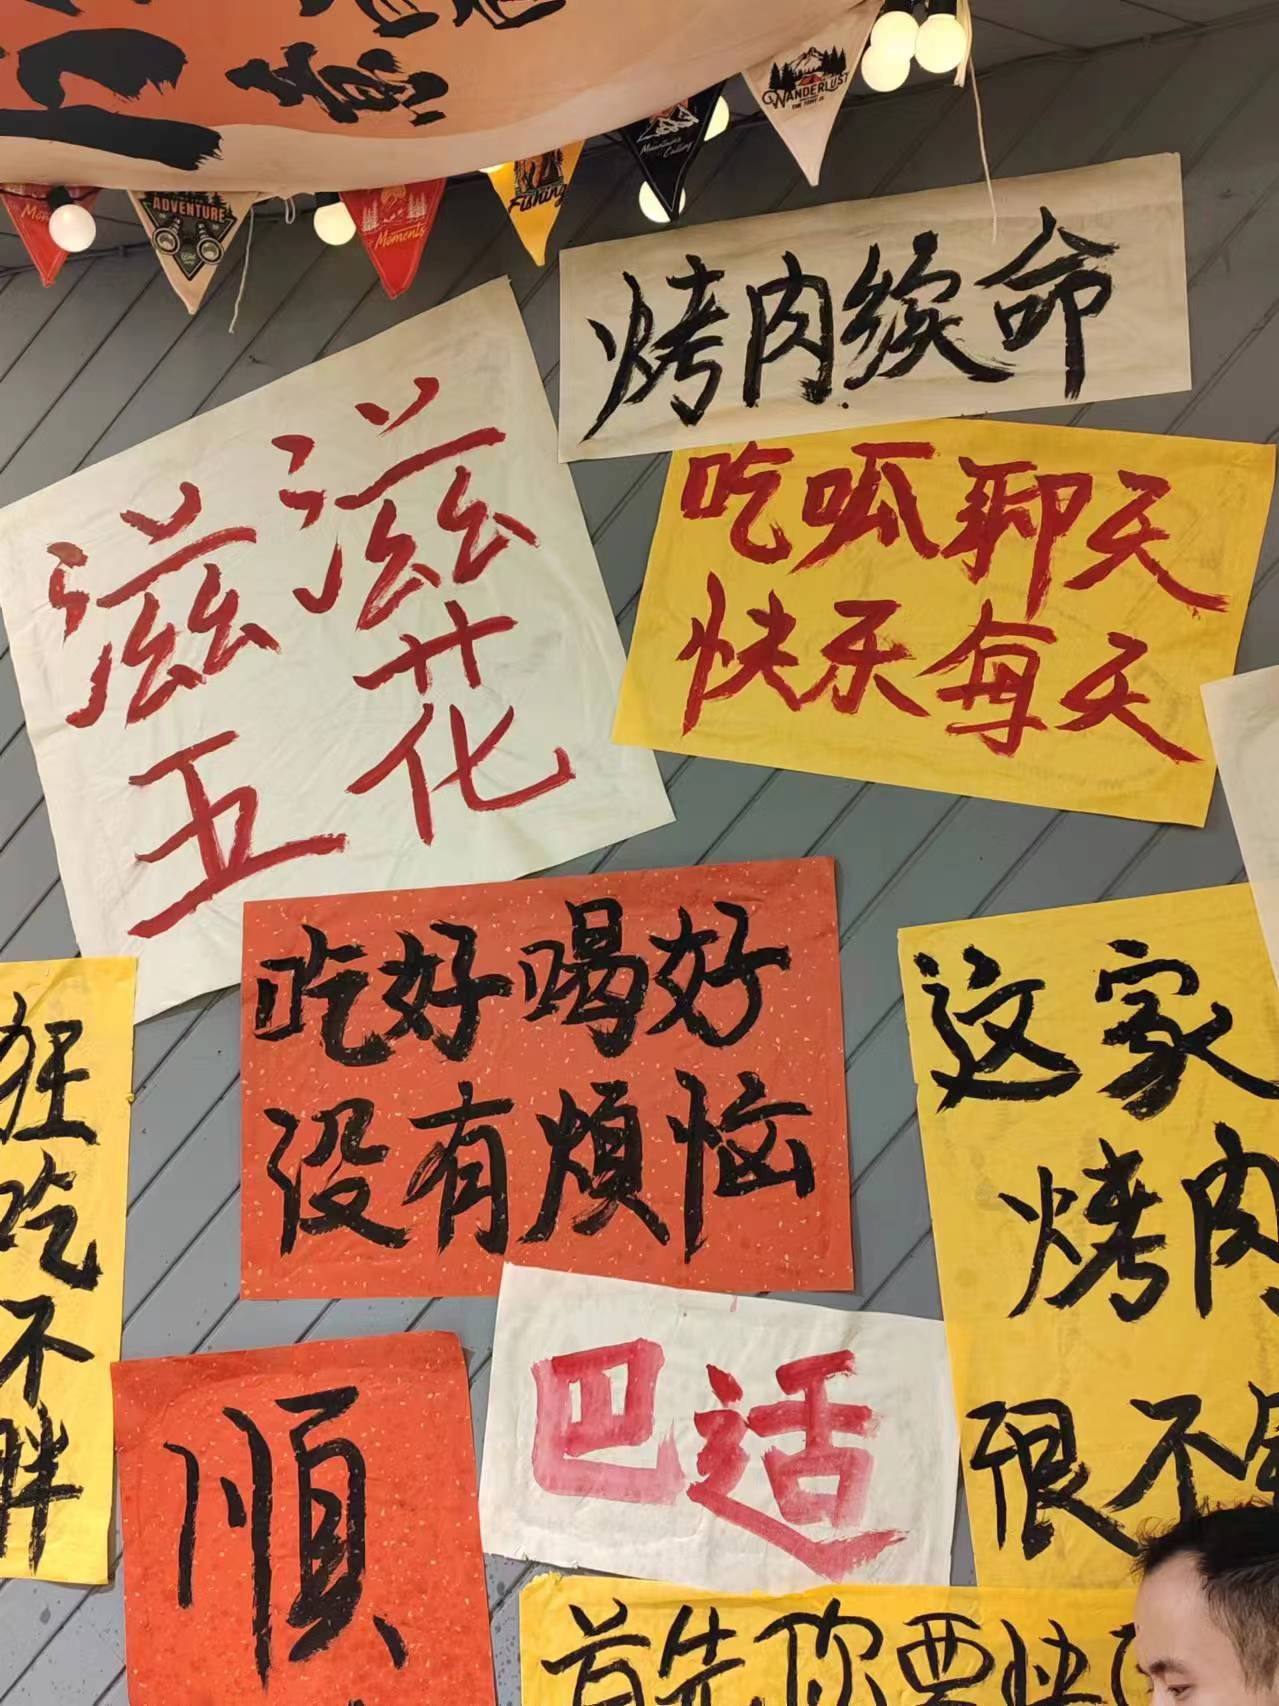 WANDERLUST
Mountains
Calling
Fishing
ADVENTURE
Moments
烤肉续命
滋滋
五花
吃呱聊天
快乐每天
吃好喝好
没有烦恼
这家
烤肉
很不
狂吃不胖
巴适
顺
首先你要快